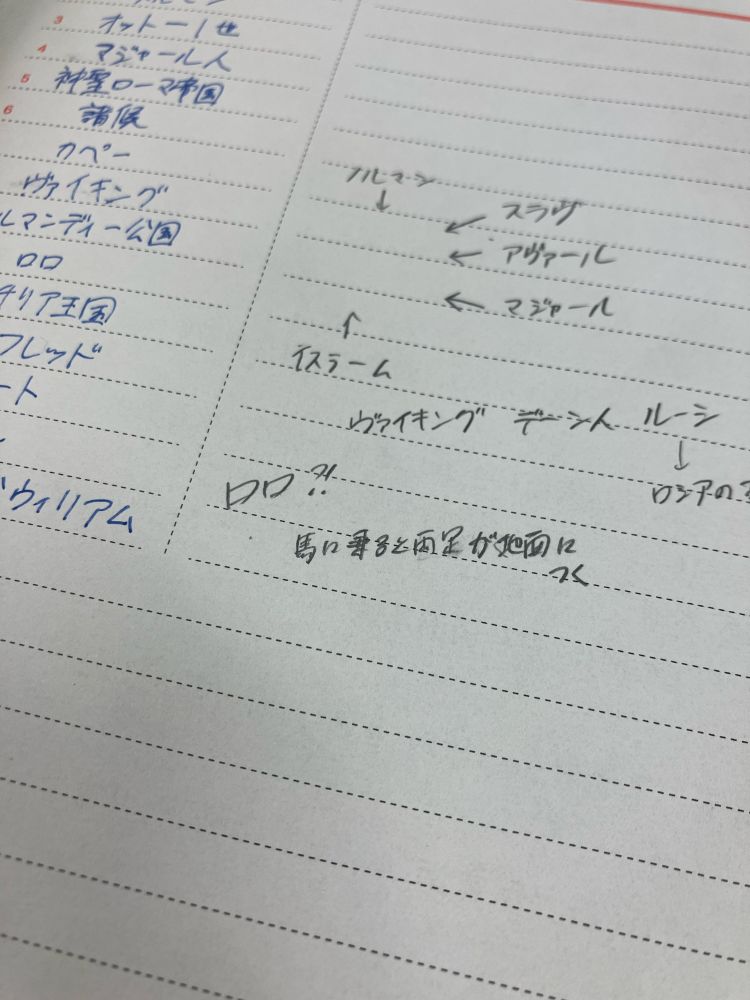 3 オットー1世
4 マジャール人
5 神聖ローマ帝国
6 諸侯
カペー
ヴァイキング
ルマンディー公国
ロロ
チリア王国
フレッド
ート
ウィリアム
ノルマン
↓
← スラヴ
← アヴァール
← マジャール
↑
イスラーム
ヴァイキング デーン人 ルーシ
↓
ロシアの
ロロ?!
馬に乗ると両足が地面に
つく